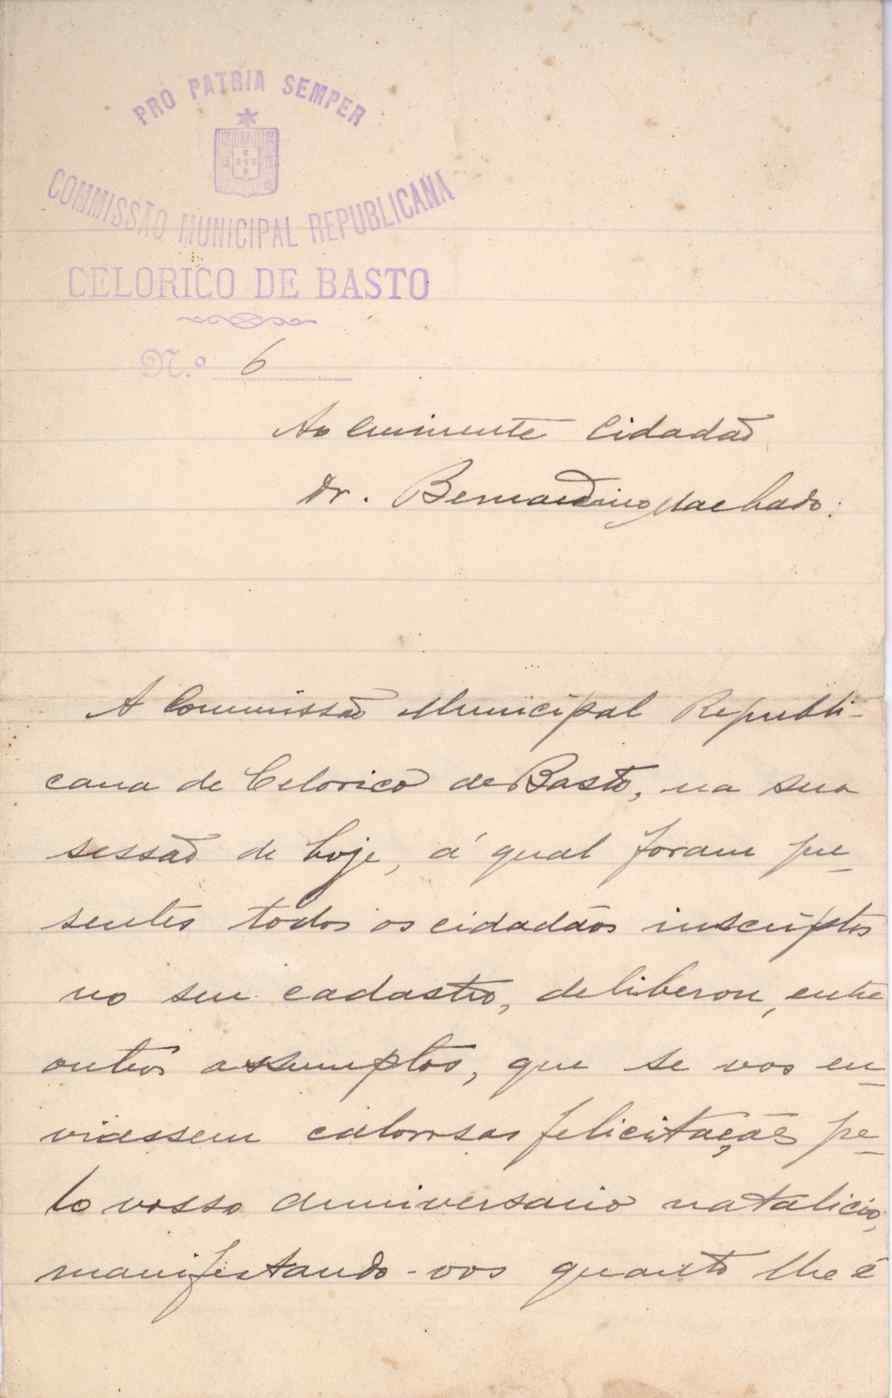 PRO PATRIA SEMPER
COMMISSÃO MUNICIPAL REPUBLICANA
CELORICO DE BASTO
N.º 6
Ao Eminente Cidadão
Dr. Bernardino Machado:
A Commissão Municipal Republi-
cana de Celorico de Basto, na sua
sessão de hoje, á qual foram pre-
sentes todos os cidadãos inscriptos
no seu cadastro, deliberou, entre
outros assumptos, que se vos en-
viassem calorosas felicitações pe-
lo vosso anniversario natalicio,
manifestando-vos quanto lhe é